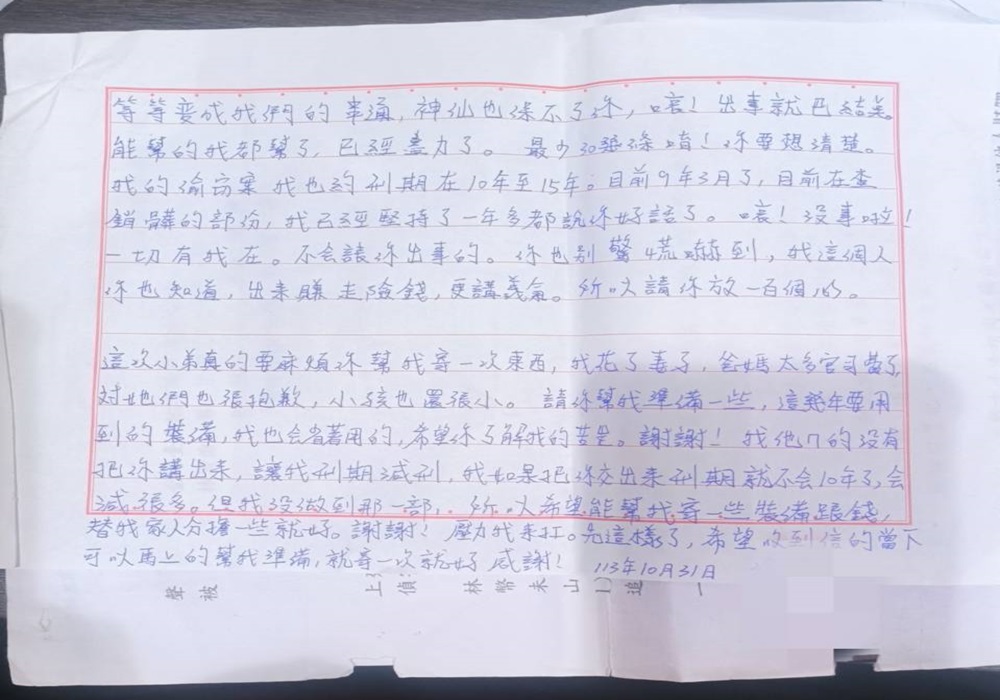 等等变成我們的串通，神仙也保不了你，唉！出事就已結美。
能幫的我都幫了，已經盡力了。最少30ippi條唷！你要想清楚。
我的偷窃案我也約刑期在10年至15年。目前9年3月了，目前在查
銷贓的部份，我已經堅持了一年多都說你好話了。唉！沒事啦！
一切有我在。不会讓你出事的。你也別驚慌嚇到，我這個人
你也知道，出来賺走險錢，更講義氣。所以請你放一百個心。
這次小弟真的要麻煩你幫我寄一次東西，我花了妻子，爸媽太多官司費了，
对她們也張抱歉，小孩也還張小。請你幫我準備一些，這幾年要用
到的裝備，我也会省著用的，希望你了解我的苦衷。謝謝！我他们的没有
把你講出来，讓我刑期減刑，我如果把你交出来刑期就不会10年了，会
減張多。但我没做到那一部，所以希望能幫我寄一些裝備跟錢，
替我家人分擔一些就好。謝謝！壓力我来扛。先這樣了，希望收到信的當下
可以馬上的幫我準備，就寄一次就好感謝！113年10月31日
聲被 上 偵 林幣未山 追 一